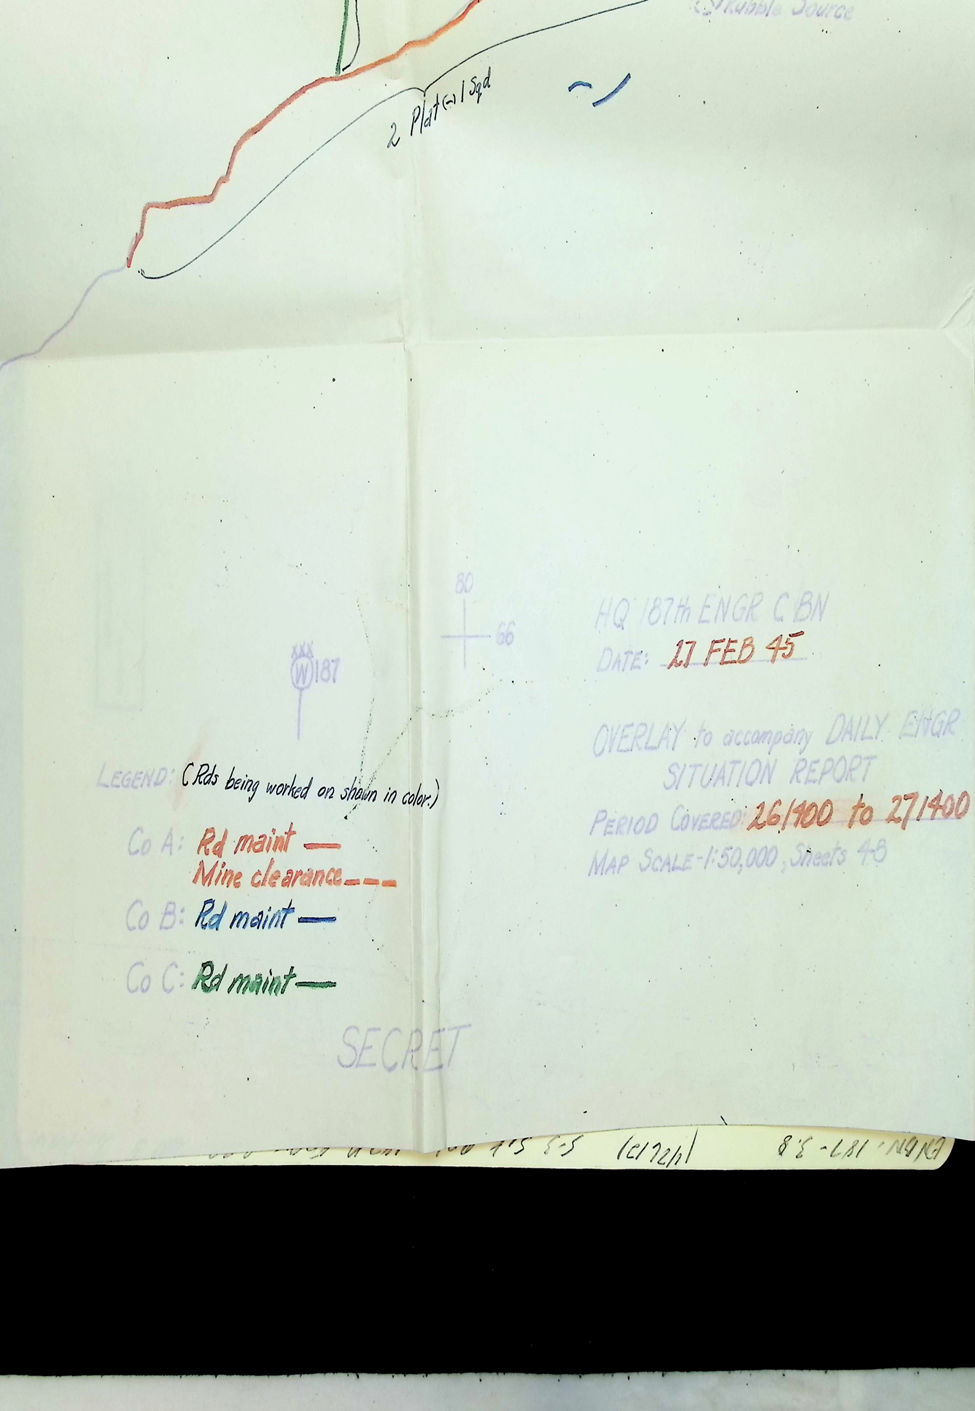 (S) Rubble Source
2 Plat (-) 1 Sqd
80
66
W 187
HQ 187th ENGR C BN
DATE: 27 FEB 45
OVERLAY to accompany DAILY ENGR
SITUATION REPORT
PERIOD COVERED: 261400 to 271400
MAP SCALE-1:50,000, Sheets 4-8
LEGEND: (Rds being worked on shown in color.)
Co A: Rd maint
Mine clearance
Co B: Rd maint
Co C: Rd maint
SECRET
ENBN-187-3.8